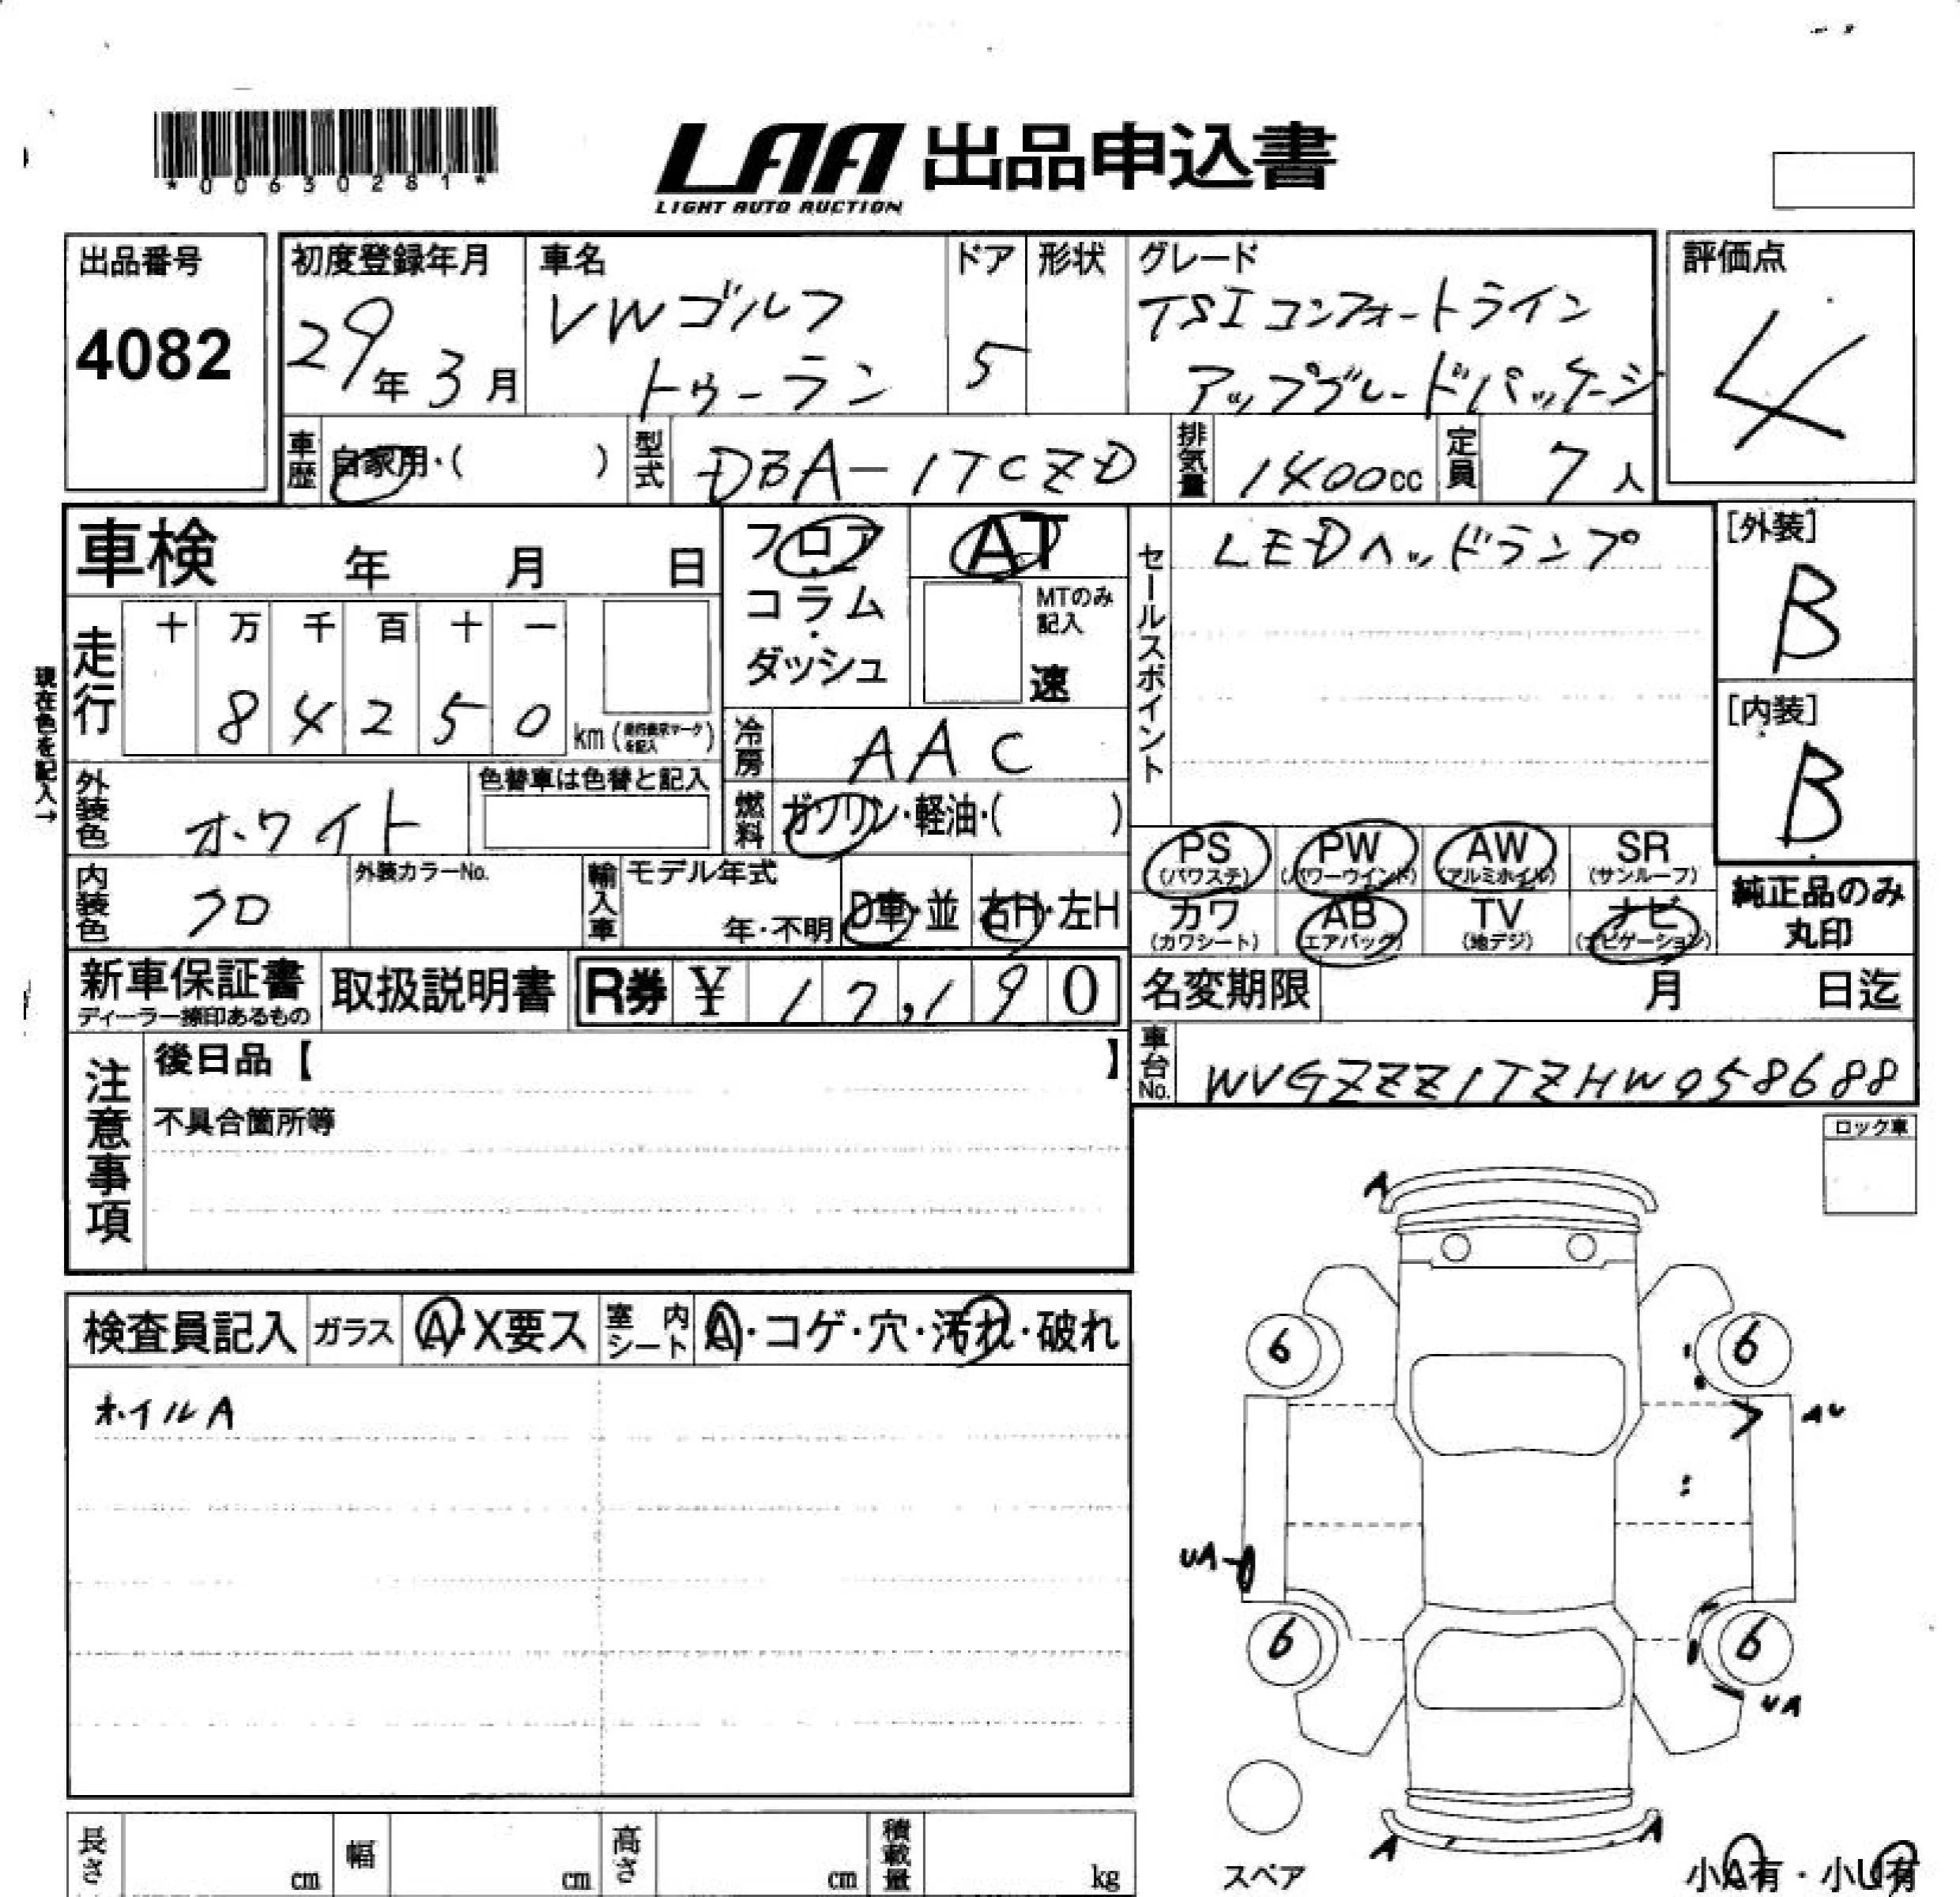 *00630281*
LAA 出品申込書
LIGHT AUTO AUCTION
出品番号
4082
初度登録年月
29年3月
車名
VWゴルフ
トゥーラン
ドア
5
形状
グレード
TSIコンフォートライン
アップグレードパッケージ
評価点
4
車歴
自家用・( )
型式
DBA-1TCZD
排気量
1400cc
定員
7人
車検 年 月 日
フロア
・
コラム
・
ダッシュ
AT
MTのみ
記入
速
セールスポイント
LEDヘッドランプ
[外装]
B
[内装]
B
現在色を記入→
走行
十 万 千 百 十 一
8 4 2 5 0 km
冷房
AAC
外装色
ホワイト
色替車は色替と記入
燃料
ガソリン・軽油・( )
PS
(パワステ)
PW
(パワーウインド)
AW
(アルミホイル)
SR
(サンルーフ)
内装色
クロ
外装カラーNo.
輸入車
モデル年式
年・不明
D車・並
右H・左H
カワ
(カワシート)
AB
(エアバッグ)
TV
(地デジ)
ナビ
(ナビゲーション)
純正品のみ
丸印
新車保証書
ディーラー捺印あるもの
取扱説明書
R券 ¥ 17,190
名変期限 月 日迄
車台No.
WVGZZZ1TZHW058688
注意事項
後日品【 】
不具合箇所等
ロック車
検査員記入
ガラス
A・X要ス
室内シート
A・コゲ・穴・汚れ・破れ
ホイルA
A
6
6
AU
UA
6
6
UA
A
A
スペア
小A有・小U有
長さ cm
幅 cm
高さ cm
積載量 kg